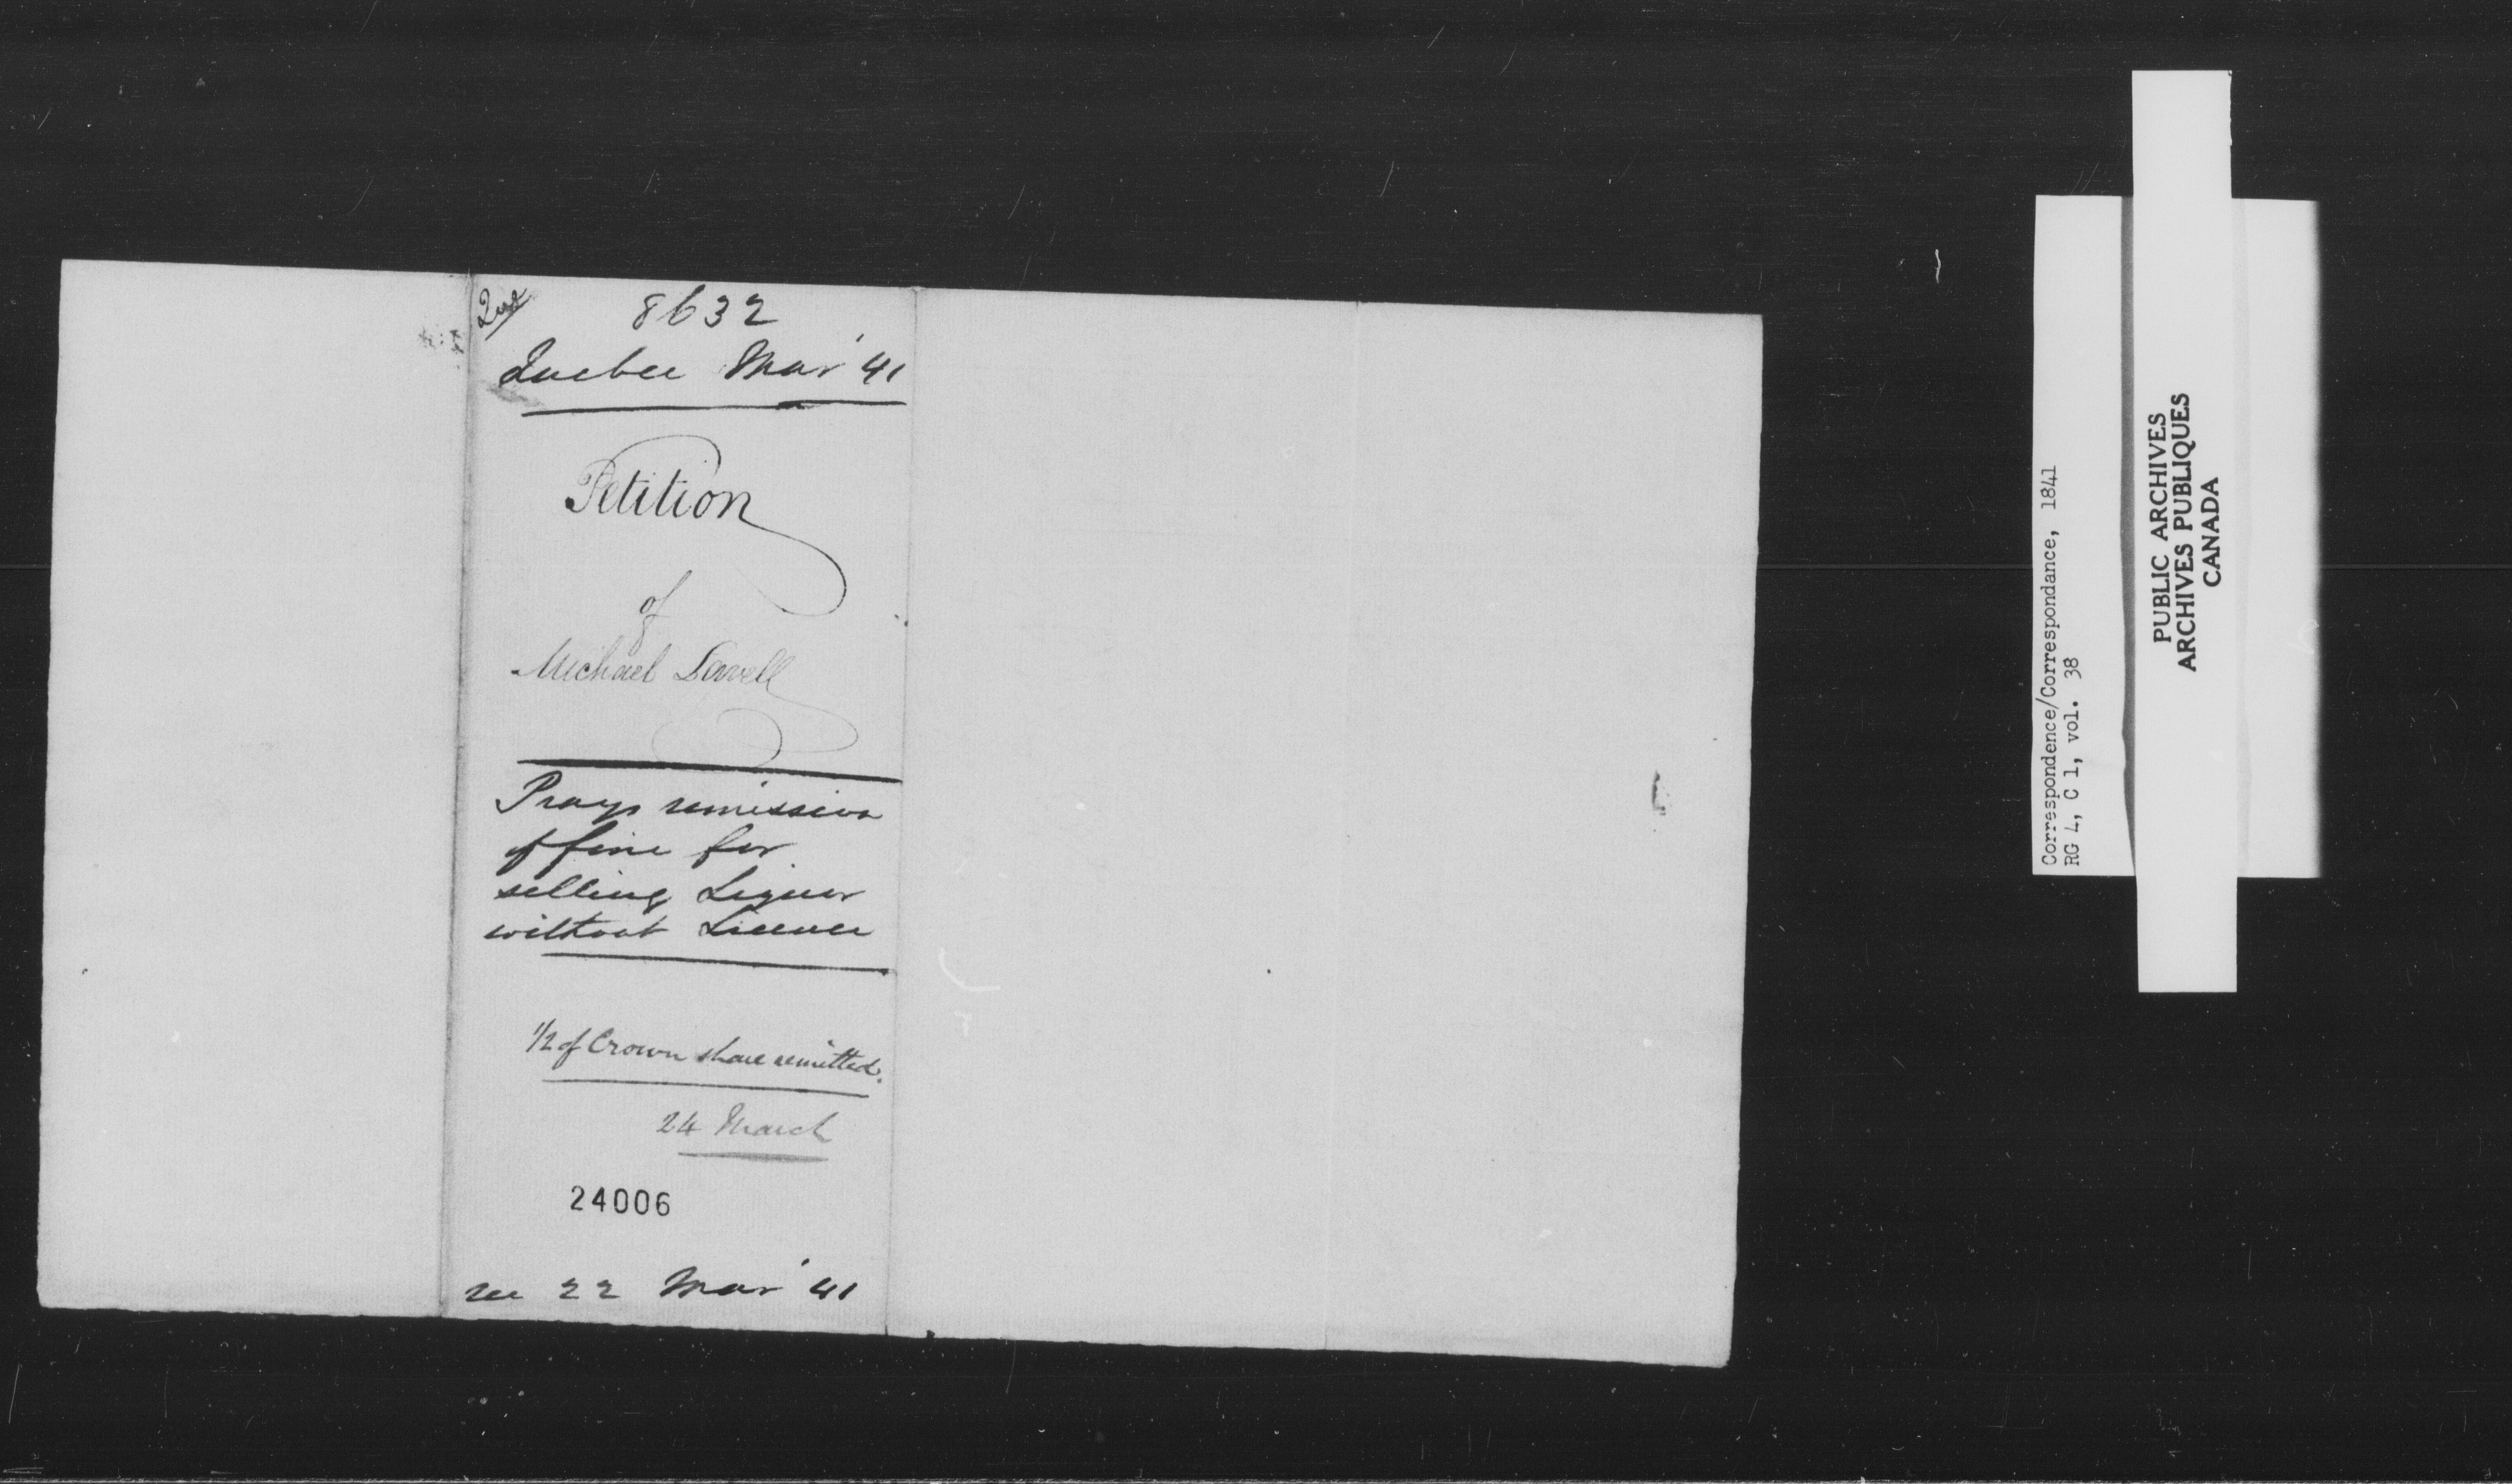 8632
Quebec Mar' 41
Petition
of
Michael
Prays remission
of fine for
selling Liquor
without Licence
1/2 of Crown share remitted.
24 March
24006
rec 22 Mar' 41
Correspondence/Correspondance, 1841
RG 4, C 1, vol. 38
PUBLIC ARCHIVES
ARCHIVES PUBLIQUES
CANADA